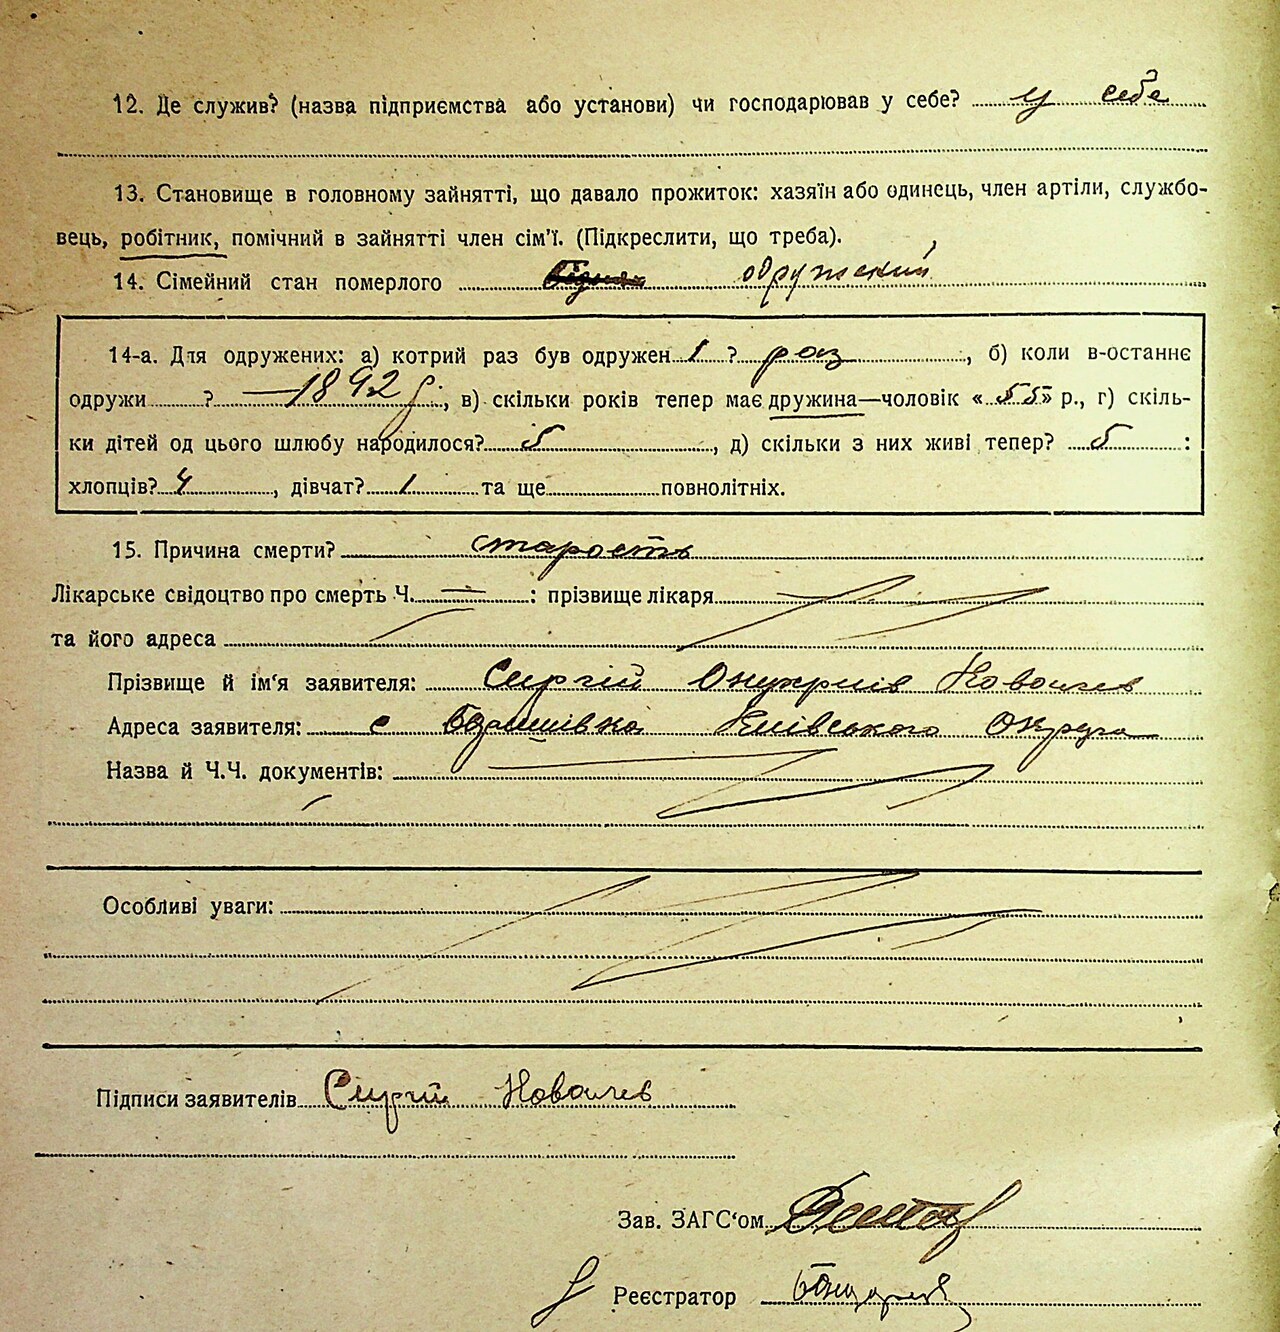 12. Де служив? (назва підприємства або установи) чи господарював у себе? у себе
13. Становище в головному зайнятті, що давало прожиток: хазяїн або одинець, член артіли, службо-
вець, робітник, помічний в зайнятті член сім'ї. (Підкреслити, що треба).
14. Сімейний стан померлого одружений
14-а. Для одружених: а) котрий раз був одружен 1 ? раз, б) коли в-останнє
одружи ? 1892 р, в) скільки років тепер має дружина—чоловік «55» р., г) скіль-
ки дітей од цього шлюбу народилося? 5, д) скільки з них живі тепер? 5 :
хлопців? 4, дівчат? 1 та ще повнолітніх.
15. Причина смерти? старость
Лікарське свідоцтво про смерть Ч. : прізвище лікаря
та його адреса
Прізвище й ім'я заявителя: Сергій
Адреса заявителя: с Київського Округа
Назва й Ч.Ч. документів:
Особліві уваги:
Підписи заявителів Сергій
Зав. ЗАГС'ом
Реєстратор